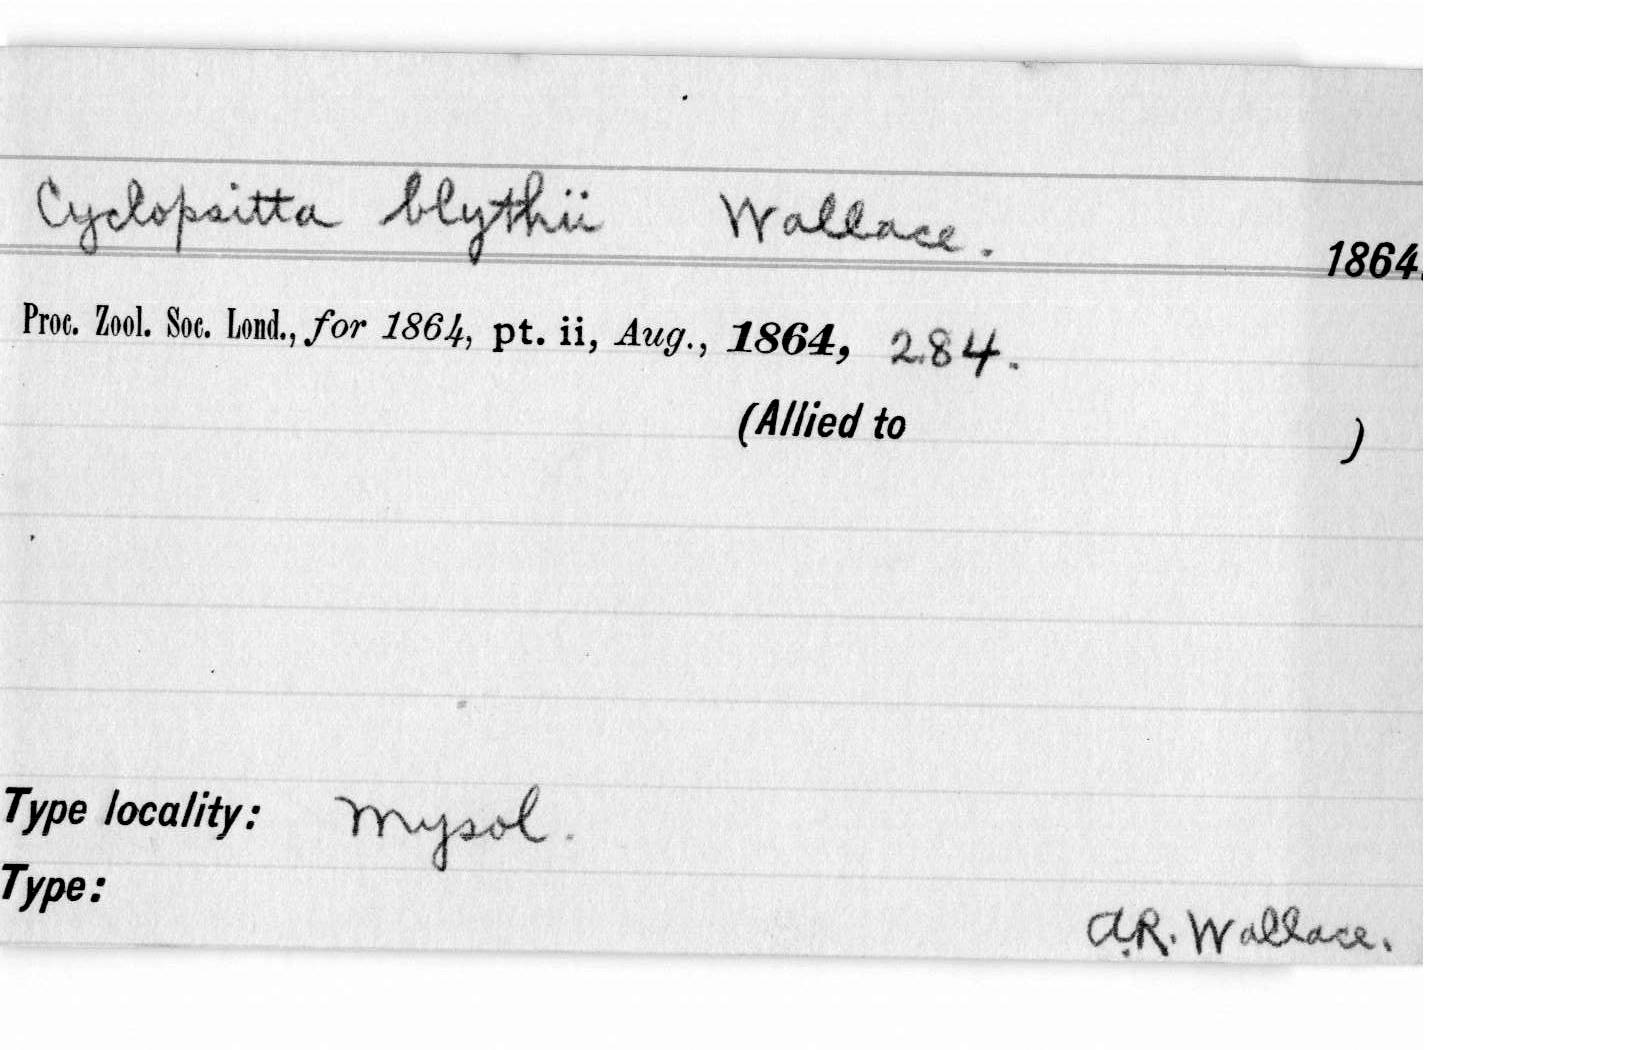 Cyclopsitta blythii Wallace. 1864.
Proc. Zool. Soc. Lond., for 1864, pt. ii, Aug., 1864, 284.
(Allied to )
Type locality: Mysol.
Type:
A.R. Wallace.